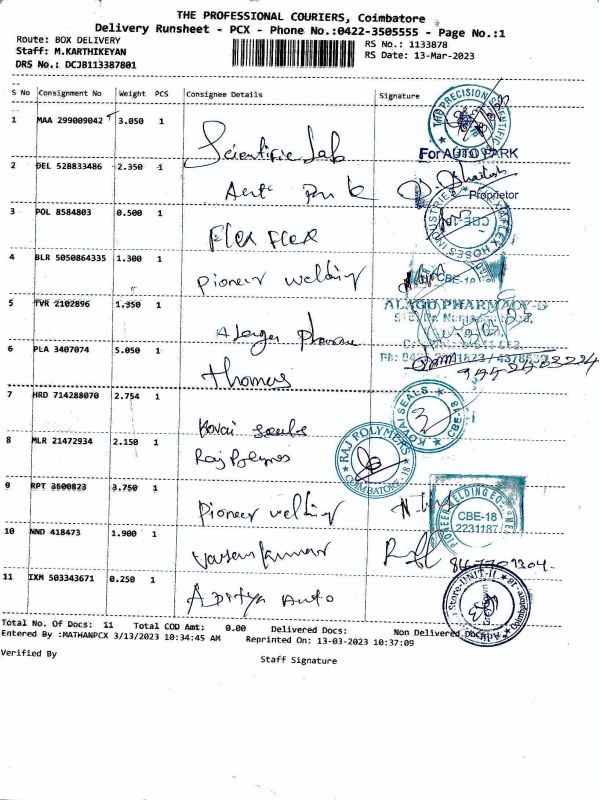 THE PROFESSIONAL COURIERS, Coimbatore
Delivery Runsheet - PCX - Phone No.:0422-3505555 - Page No.:1
Route: BOX DELIVERY
RS No.: 1133878
Staff: M.KARTHIKEYAN
RS Date: 13-Mar-2023
DRS No.: DCJB113387801
S No Consignment No Weight PCS Consignee Details Signature
1 MAA 299009042 3.050 1 Scientific Lab
THE PRECISION SCIENTIFIC
For AUTO PARK
2 DEL 528833486 2.350 1 Auto Park
Proprietor
3 POL 8584803 0.500 1 Flex Flex
FLEX HOSES INDUSTRIES
CBE-18
4 BLR 5050864335 1.300 1 Pioneer Welding
CBE-18
5 TVR 2102896 1.350 1
ALAGU PHARMACY-D
6 PLA 3407074 5.050 1 Thomas
7 HRD 714288070 2.754 1 Kovai Seals
KOVAI SEALS
8 MLR 21472934 2.150 1 Raj Polymers
RAJ POLYMERS
COIMBATORE-18
9 RPT 3500823 3.750 1 Pioneer Welding
CBE-18
2231187
10 NND 418473 1.900 1
11 IXM 503343671 0.250 1 Aditya Auto
Store-UNIT-II
Total No. Of Docs: 11 Total COD Amt: 0.00 Delivered Docs: Non Delivered Docs:
Entered By :MATHANPCX 3/13/2023 10:34:45 AM Reprinted On: 13-03-2023 10:37:09
Verified By
Staff Signature